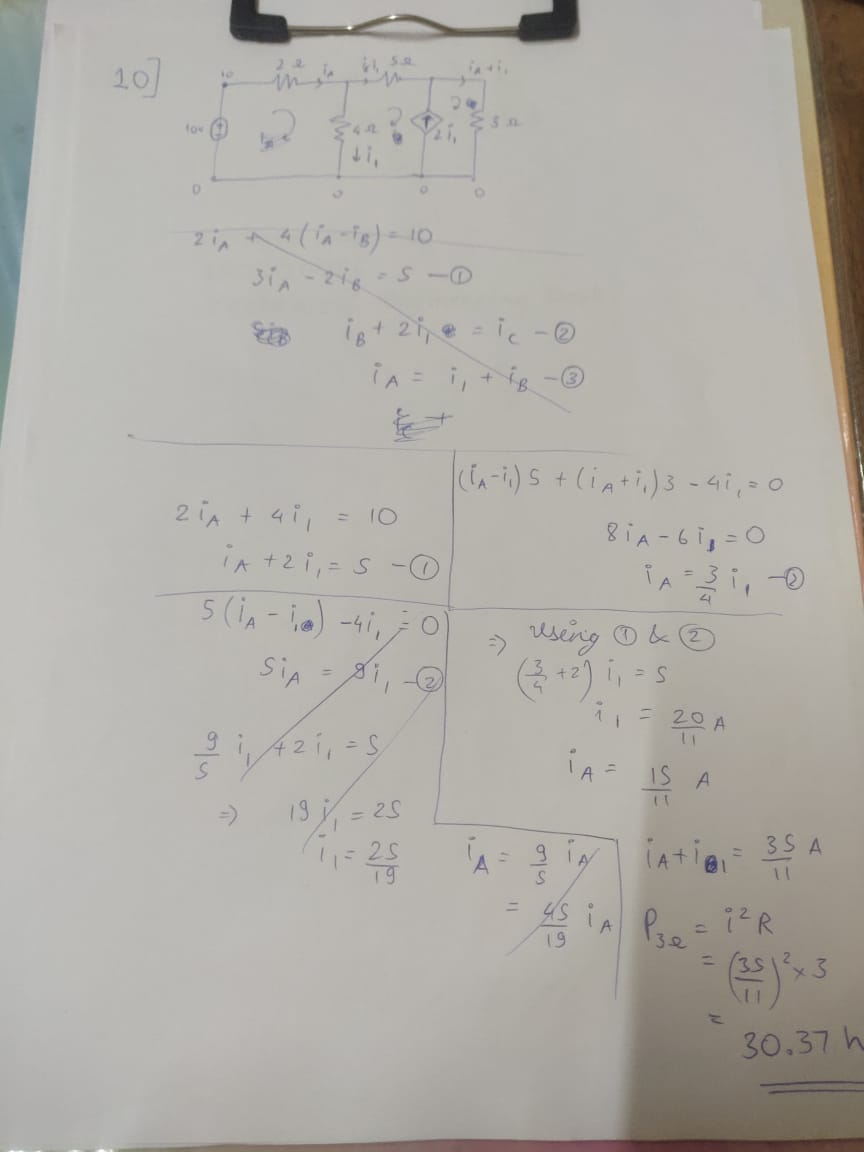 10]
10 2 Ω iA 5Ω iA+i₁
10V 4 Ω 2i₁ 3 Ω
↓i₁
0 0 0 0
2iA + 4(iA-iB) = 10
3iA - 2iB = 5 - ①
iB + 2i₁ = iC - ②
iA = i₁ + iB - ③
2iA + 4i₁ = 10
iA + 2i₁ = 5 - ①
(iA-i₁) 5 + (iA+i₁) 3 - 4i₁ = 0
8iA - 6i₁ = 0
iA = 3/4 i₁ - ②
5(iA - i₁) - 4i₁ = 0
5iA = 9i₁ - ②
9/5 i₁ + 2i₁ = 5
⇒ 19i₁ = 25
i₁ = 25/19
iA = 9/5 iA
= 45/19 iA
⇒ using ① & ②
(3/4 + 2) i₁ = 5
i₁ = 20/11 A
iA = 15/11 A
iA+i₁ = 35/11 A
P3Ω = i²R
= (35/11)² × 3
= 30.37